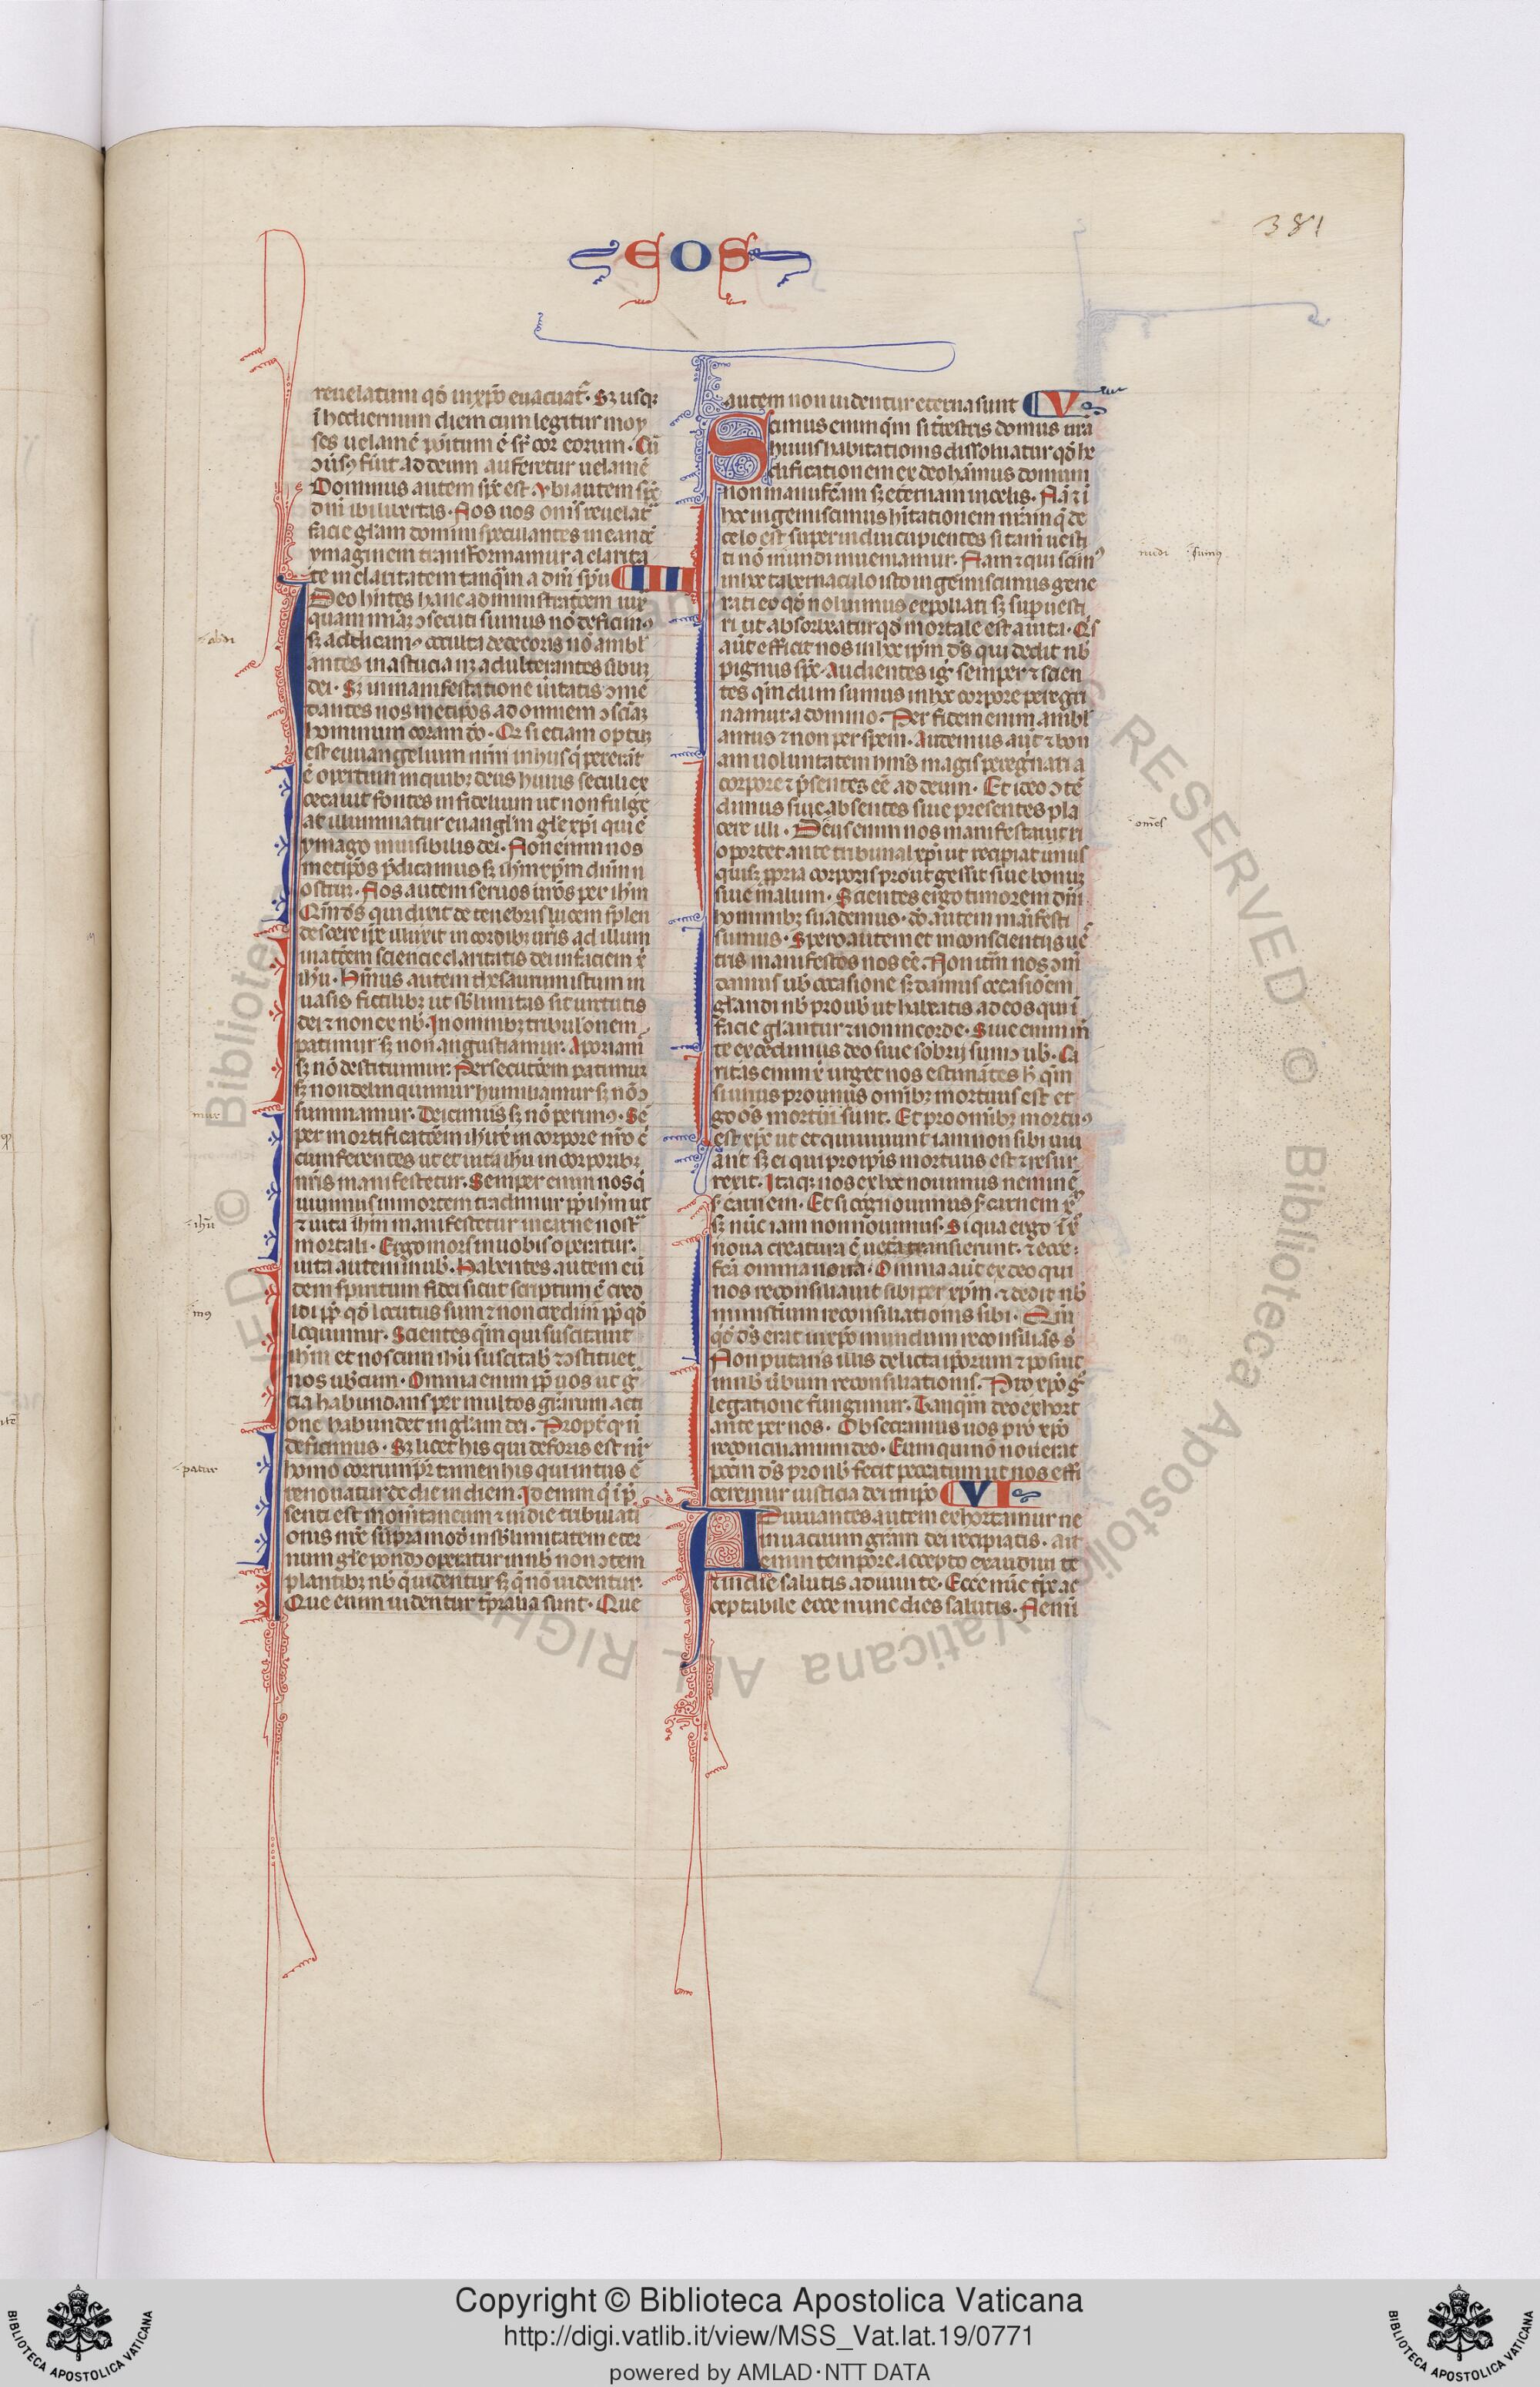 381
EOS
reuelatum qđ in xp̄o euacuat᷒. Sꝫ usqꝫ
ī hodiernum diem cum legitur moy
ses uelamē poītum ē sr̄ cor eorum. Cū
ɔūsꝰ fūit ad deum auferetur uelamē
Dominus autem sp̄c est. Vbi autem sp̄c
dnī ibi libertas. Nos uos om̄s reuelat᷒
facie gl̄am domini speculantes in eandē
ymaginem transformamur a clarita
te in claritatem tanq̄m a dnī sp̄u IIII
Ideo hn̄tes hanc administrat̄em iux̄
quam mīam ɔsecuti sumus nō deficimꝰ
sꝫ abdicamꝰ occulta dedecoris nō ambl̄
antes in astucia nꝫ adulterantes ūbuꝫ
dei. Sꝫ in manifestatione ūitatis ɔmē
dantes nos metip̄os ad omnem ɔsciaꝫ
hominum coram dō. Qꝛ si etiam optuꝫ
est euuangelium nr̄m in hijs q̄ pereūt
ē opertum in quibꝫ deus huius seculi ex
cecauit fontes infidelium ut non fulge
at illuminatur euangl̄m gl̄e xp̄i qui ē
ymago inuisibilis dei. Non enim nos
metip̄os p̄dicamus sꝫ ih̄m xp̄m dnīm n
ostrūm. Nos autem seruos ur̄os per ih̄m
Qm̄ dс̄ qui dixit de tenebris lucem sp̄len
descere ip̄e illuxit in cordibꝫ ur̄is ad illum
inat̄em sciencie claritatis dei in faciem x̄
ih̄u. Hm̄us autem thesaurum istum in
uasis fictilibꝫ ut sb̄limitas sit uirtutis
dei ⁊ non ex nb̄. In omnibꝫ tribul̄onem
patimur sꝫ non angustiamur. Aporiam̄
sꝫ nō destituimur. Persecut̄em patimur
sꝫ non delinquimur humiliamur sꝫ nō ɔ
fundamur. Deicimus sꝫ nō perimꝰ. Se
per mortificat̄em ih̄u in corpore nr̄o ē
cumferentes ut et uita ih̄u in corporibꝫ
nr̄is manifestetur. Semper enim nos q̄
uiuimus in mortem tradimur pp̄ ih̄m ut
⁊ uita ih̄m manifestetur in carne nost᷒
mortali. Ergo mors in uobis operatur.
uita autem in ub̄. Habentes autem eū
dem spiritum fidei sicut scriptum ē credi
di pp̄ qđ locutus sum ⁊ non credim̄ pp̄ qđ
loquimur. Scientes q̄m qui suscitauit
ih̄m et nos cum ih̄u suscitab̄ ⁊ ɔstituet
nos ub̄cum. Omnia enim pp̄ uos ut g᷒
cia habundans per multos gr̄arum acti
one habundet in gl̄am dei. Propt̄ q̄ n̄
deficimus. Sꝫ licet his qui deforis est nr̄
homo corrumpit᷒ tamen his qui intus ē
renouatur de die in diem. Id enim q̄ ī p̄
senti est momentaneum ⁊ in die tribulati
onis nr̄e supra modū in sb̄limitatem eter
num gl̄e pondɔ operatur in nb̄ non ɔtem
plantibꝫ nb̄ q̄ uidentur sꝫ q̄ nō uidentur.
Que enim uidentur tp̄ralia sunt. Que
autem non uidentur eterna sunt V
Scimus enim q̄m si tr̄estris domus ūra
huius habitationis dissoluatur qđ hꝫ
edificationem ex deo ham̄us domum
non manufc̄am sꝫ eternam in celis. Nā ⁊ ī
hoc ingemiscimus hītationem nr̄am q̄ de
celo est superindui cupientes si tam̄ uesti
ti nō nudi inueniamur. Nam ⁊ qui sum̄ꝰ
in hoc tabernaculo isto ingemiscimus gene
rati eo qđ nolumus expoliari sꝫ sup̄uesti
ri ut absorbeatur qđ mortale est a uita. Q̄s
aūt efficit nos in hoc ip̄m dс̄ qui dedit nb̄
pignus sp̄c. Audientes ig᷒ semper ⁊ scien
tes q̄m dum sumus in hoc corpore peregri
namur a domino. Per fidem enim ambl̄
amus ⁊ non per spem. Audemus aūt ⁊ bon
am uoluntatem hm̄s magis peregrinari a
corpore ⁊ p̄sentes eē ad deum. Et ideo ɔtē
dimus siue absentes siue presentes pla
cere illi. Om̄s enim nos manifestauit ri
oportet ante tribunal xp̄i ut recipiat unus
quisqꝫ ꝓpria corporis prout gessit siue bonuꝫ
siue malum. Scientes ergo timorem dnī
hominibꝫ suademus. dō autem manifesti
sumus. Spero autem et in conscientijs ue
stris manifestos nos eē. Non itm̄ nos ɔm̄
damus ub̄ occasione sꝫ damus occasionem
gl̄andi nb̄ pro ub̄ ut habeatis ad eos qui ī
facie gl̄antur ⁊ non in corde. Siue enim m̄
te excedimus deo siue sobrij sumɔ ub̄. Ca
ritas enim x̄ urget nos estimātes h̄ q̄m
si unus pro unis omībꝫ mortuus est er
go om̄s mortui sunt. Et pro omībꝫ mortuꝰ
est xp̄c ut et qui uiuunt iam non sibi uiu
ant sꝫ ei qui pro ip̄is mortuus est ⁊ resur
rexit. Itaqꝫ nos ex hoc nouimus neminē
s̄ carnem. Et si cognouimus s̄ carnem x̄
sꝫ nūc iam non nouimus. Si qua ergo ī x̄
noua creatura ē uetera transierunt. ⁊ ecce
fc̄a omnia noua. Omnia aūt ex deo qui
nos reconsiliauit sibi per xp̄m. ⁊ dedit nb̄
ministerium reconsiliationis sibi. Qm̄
qđ dс̄ erat in xp̄o mundum reconsilians s
Non putans illis delicta ip̄orum ⁊ posuit
in nb̄ ūbum reconsiliationis. Pro xp̄o g᷒
legatione fungimur. Tanq̄m deo exhort
ante per nos. Obsecramus uos pro xp̄o
reconciliamini deo. Eum qui nō nouerat
pccm̄ dс̄ pro nb̄ fecit peccatum ut nos effi
ceremur iusticia dei in ip̄o VI
Adiuuantes autem exhortamur ne
in uacuum gr̄am dei recipiatis. ait
enim tempore accepto exaudiui te
⁊ in die salutis adiuui te. Ecce nūc tp̄c ac
ceptabile ecce nunc dies salutis. Nemi
abdi
mur
ih̄u
imꝰ
patur
nudi sumꝰ
om̄es
Copyright © Biblioteca Apostolica Vaticana
http://digi.vatlib.it/view/MSS_Vat.lat.19/0771
powered by AMLAD·NTT DATA
BIBLIOTECA APOSTOLICA VATICANA
BIBLIOTECA APOSTOLICA VATICANA